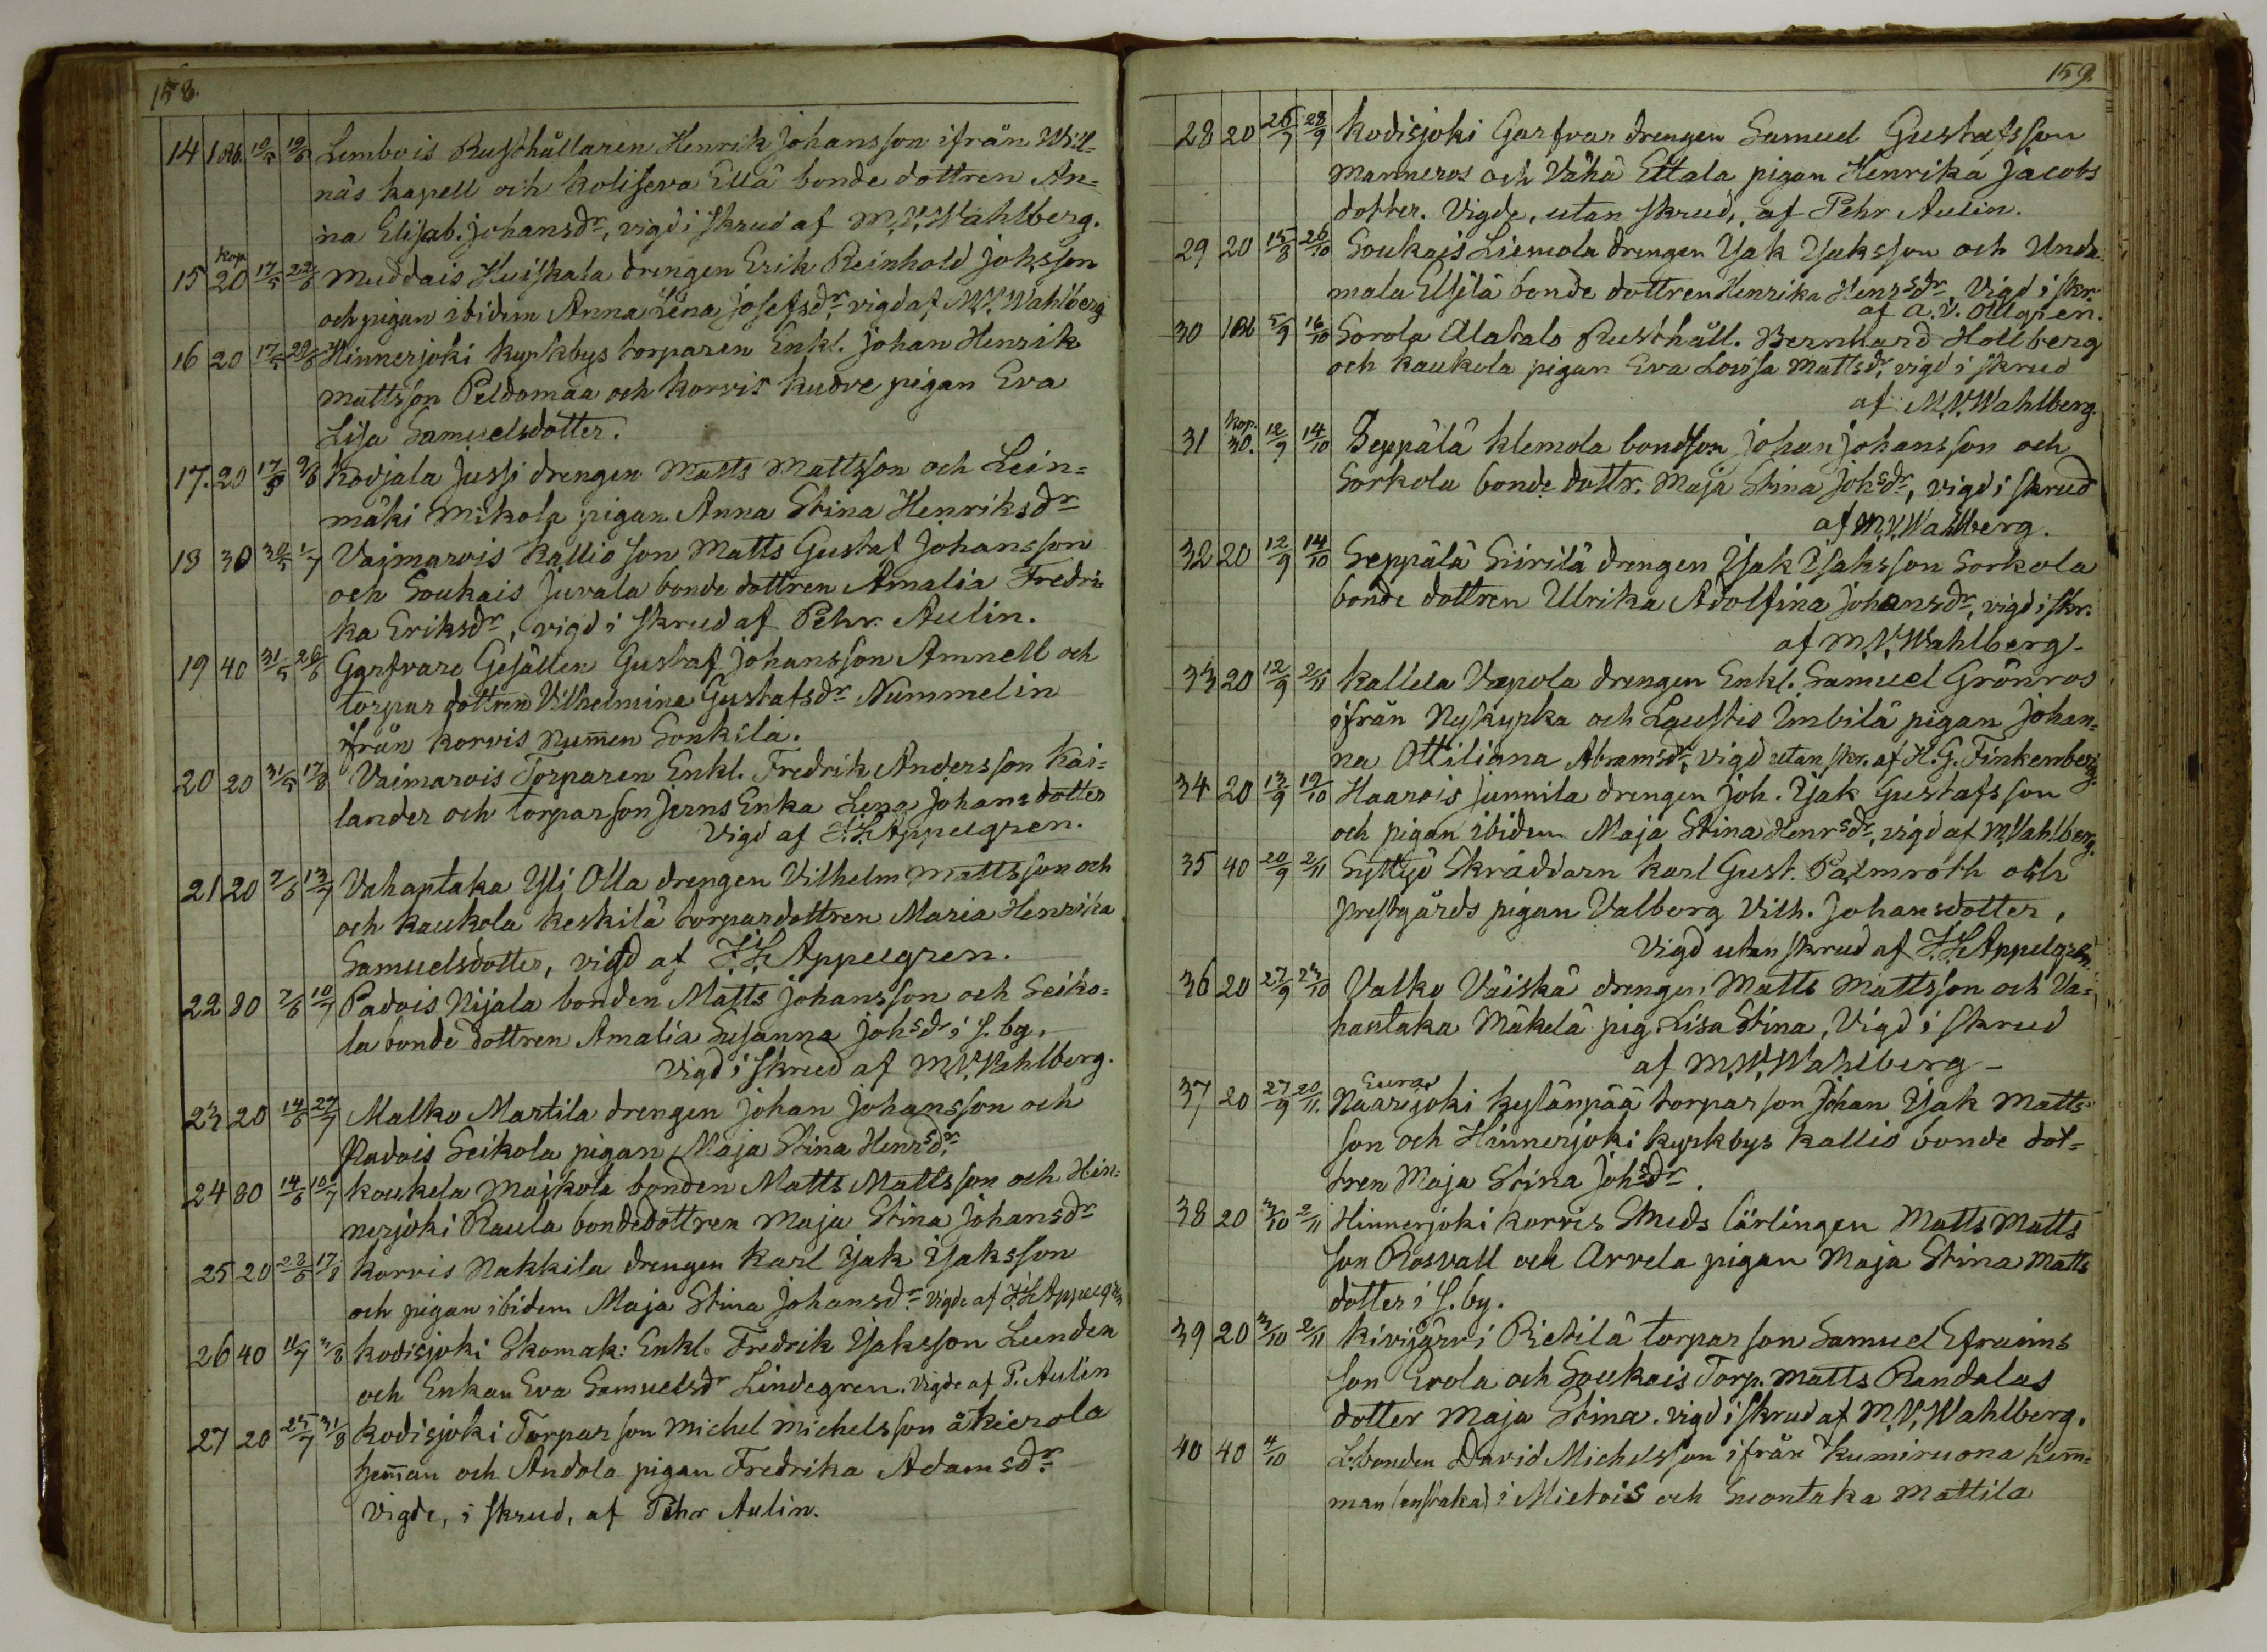 158.
14 1 Rb. 10/5 19/6 Lembois Rusthållaren Henrik Johansson ifrån Will=
näs kapell och Koliseva Ellä bonde dottren An=
na Elisab. Johansdr, vigd i skrud af M.V. Wahlberg.
Kop.
15 20 17/5 22/6 Muddais Huiskala drengen Erik Reinhold Johsson
och pigan ibidem Anna Lena Josefsdr, vigd af M.V. Wahlberg
16 20 17/5 29/6 Hinnerjoki kyrkbys torparen Enkl. Johan Henrik
Mattsson Peldomaa och Korvis Kudve pigan Eva
Lisa Samuelsdotter.
17. 20 17/5 9/6 Kodjala Jussi drengen Matts Mattsson och Lein=
mäki Mikola pigan Anna Stina Henriksdr
18 30 30/5 1/7 Vaimarois Kallio son Matts Gustaf Johansson
och Soukais Juvala bonde dottren Amalia Fredri=
ka Eriksdr, vigd i skrud af Pehr Aulin.
19 40 31/5 26/6 Garfvare Gesällen Gustaf Johansson Amnell och
torpar dottren Vilhelmina Gustafsdr Nummelin
ifrån Korvis Numen Sonkila.
20 20 31/5 17/8 Vaimarois Torparen Enkl. Fredrik Andersson Kai=
lander och torparson Jerns Enka Lena Johansdotter
Vigd af F.L. Appelgren.
21 20 7/6 13/7 Vahantaka Yli Olla drengen Vilhelm Mattsson och
och Kaukola Keskilä torpardottren Maria Henrika
Samuelsdotter, vigd af F.L. Appelgren.
22 80 7/6 10/7 Padois Nijala bonden Matts Johansson och Seiko=
la bonde dottren Amalia Susanna Johsdr i s. by.
Vigd i skrud af M.V. Wahlberg.
23 20 14/6 27/7 Malko Martila drengen Johan Johansson och
Padois Seikola pigan Maja Stina Henrsdr.
24 80 14/6 10/7 Koukela Maikola bonden Matts Mattsson och Hin=
nerjoki Raula bondedottren Maja Stina Johansdr
25 20 28/6 17/8 Korvis Nakkila drengen Karl Isak Isaksson
och pigan ibidem Maja Stina Johansdr. Vigde af F.L. Appelgren
26 40 11/7 3/8 Kodisjoki Skomak: Enkl. Fredrik Isaksson Lunden
och Enkan Eva Samuelsdr Lindegren. Vigde af P. Aulin
27 20 25/7 31/8 Kodisjoki Torpar son Michel Michelsson å Kierola
heman och Andola pigan Fredrika Adamsdr.
Vigde, i skrud, af Pehr Aulin.
159.
28 20 26/7 28/9 Kodisjoki Garfvar drengen Samuel Gustafsson
Manneros och Vähä Ettala pigan Henrika Jacobs
dotter. Vigde, utan skrud, af Pehr Aulin.
29 20 15/8 26/10 Soukais Liemola drengen Isak Isaksson och Unda
mala Ellilä bonde dottren Henrika Henrsdr, Vigd i skr.
af A.V. Ollgren.
30 1 Rb 5/9 16/10 Sorola Alatalo Rusthåll. Bernhard Hollberg
och Kaukola pigan Eva Lovisa Mattsdr, vigd i skrud
af M.V. Wahlberg.
Kop.
31 30. 12/9 14/10 Seppälä Klemola bondson Johan Johansson och
Sorkola bonde dottr. Maja Stina Johsdr, vigd i skrud
af M.V. Wahlberg.
32 20 12/9 14/10 Seppälä Siirilä drengen Isak Isaksson Sorkola
bonde dottren Ulrika Adolfina Johansdr, vigd i skr.
af M.V. Wahlberg.
33 20 12/9 2/11 Kallela Vapola drengen Enkl. Samuel Grönros
ifrån Nykyrka och Laustis Imbilä pigan Johan=
na Ottiliana Abramsdr, vigd utan skr. af H.G. Finkenberg.
34 20 13/9 19/10 Haarois Junnila drengen Joh. Isak Gustafsson
och pigan ibidem Maja Stina Henrsdr, vigd af M. Wahlberg.
35 40 20/9 2/11 Syttyö Skräddarn Karl Gust. Palmroth och
prestgårds pigan Valborg Vilh. Johansdotter,
Vigd utan skrud af F.L. Appelgren
36 20 27/9 23/10 Valko Väiskä drengen Matts Mattsson och Va=
hantaka Mäkelä pig. Lisa Stina, Vigd i skrud
af M.V. Wahlberg -
Eura
37 20 27/9 20/11. Naarijoki Kylänpää torpar son Johan Isak Matts=
son och Hinnerjoki kyrkbys Kallio bonde dot=
tren Maja Stina Johsdr.
38 20 3/10 2/11 Hinnerjoki Korvis Smeds lärlingen Matts Matts
son Rosvall och Arvela pigan Maja Stina Matts
dotter i s. by.
39 20 3/10 2/11 Kivijärvi Rietilä torpar son Samuel Efraims
son Erola och Soukais Torp. Matts Randalas
dotter Maja Stina. vigd i skrud af M.V. Wahlberg.
40 40 4/10 L.bonden David Michelsson ifrån Kumiruona hem=
man (enstaka) i Mietois och Suontaka Mattila